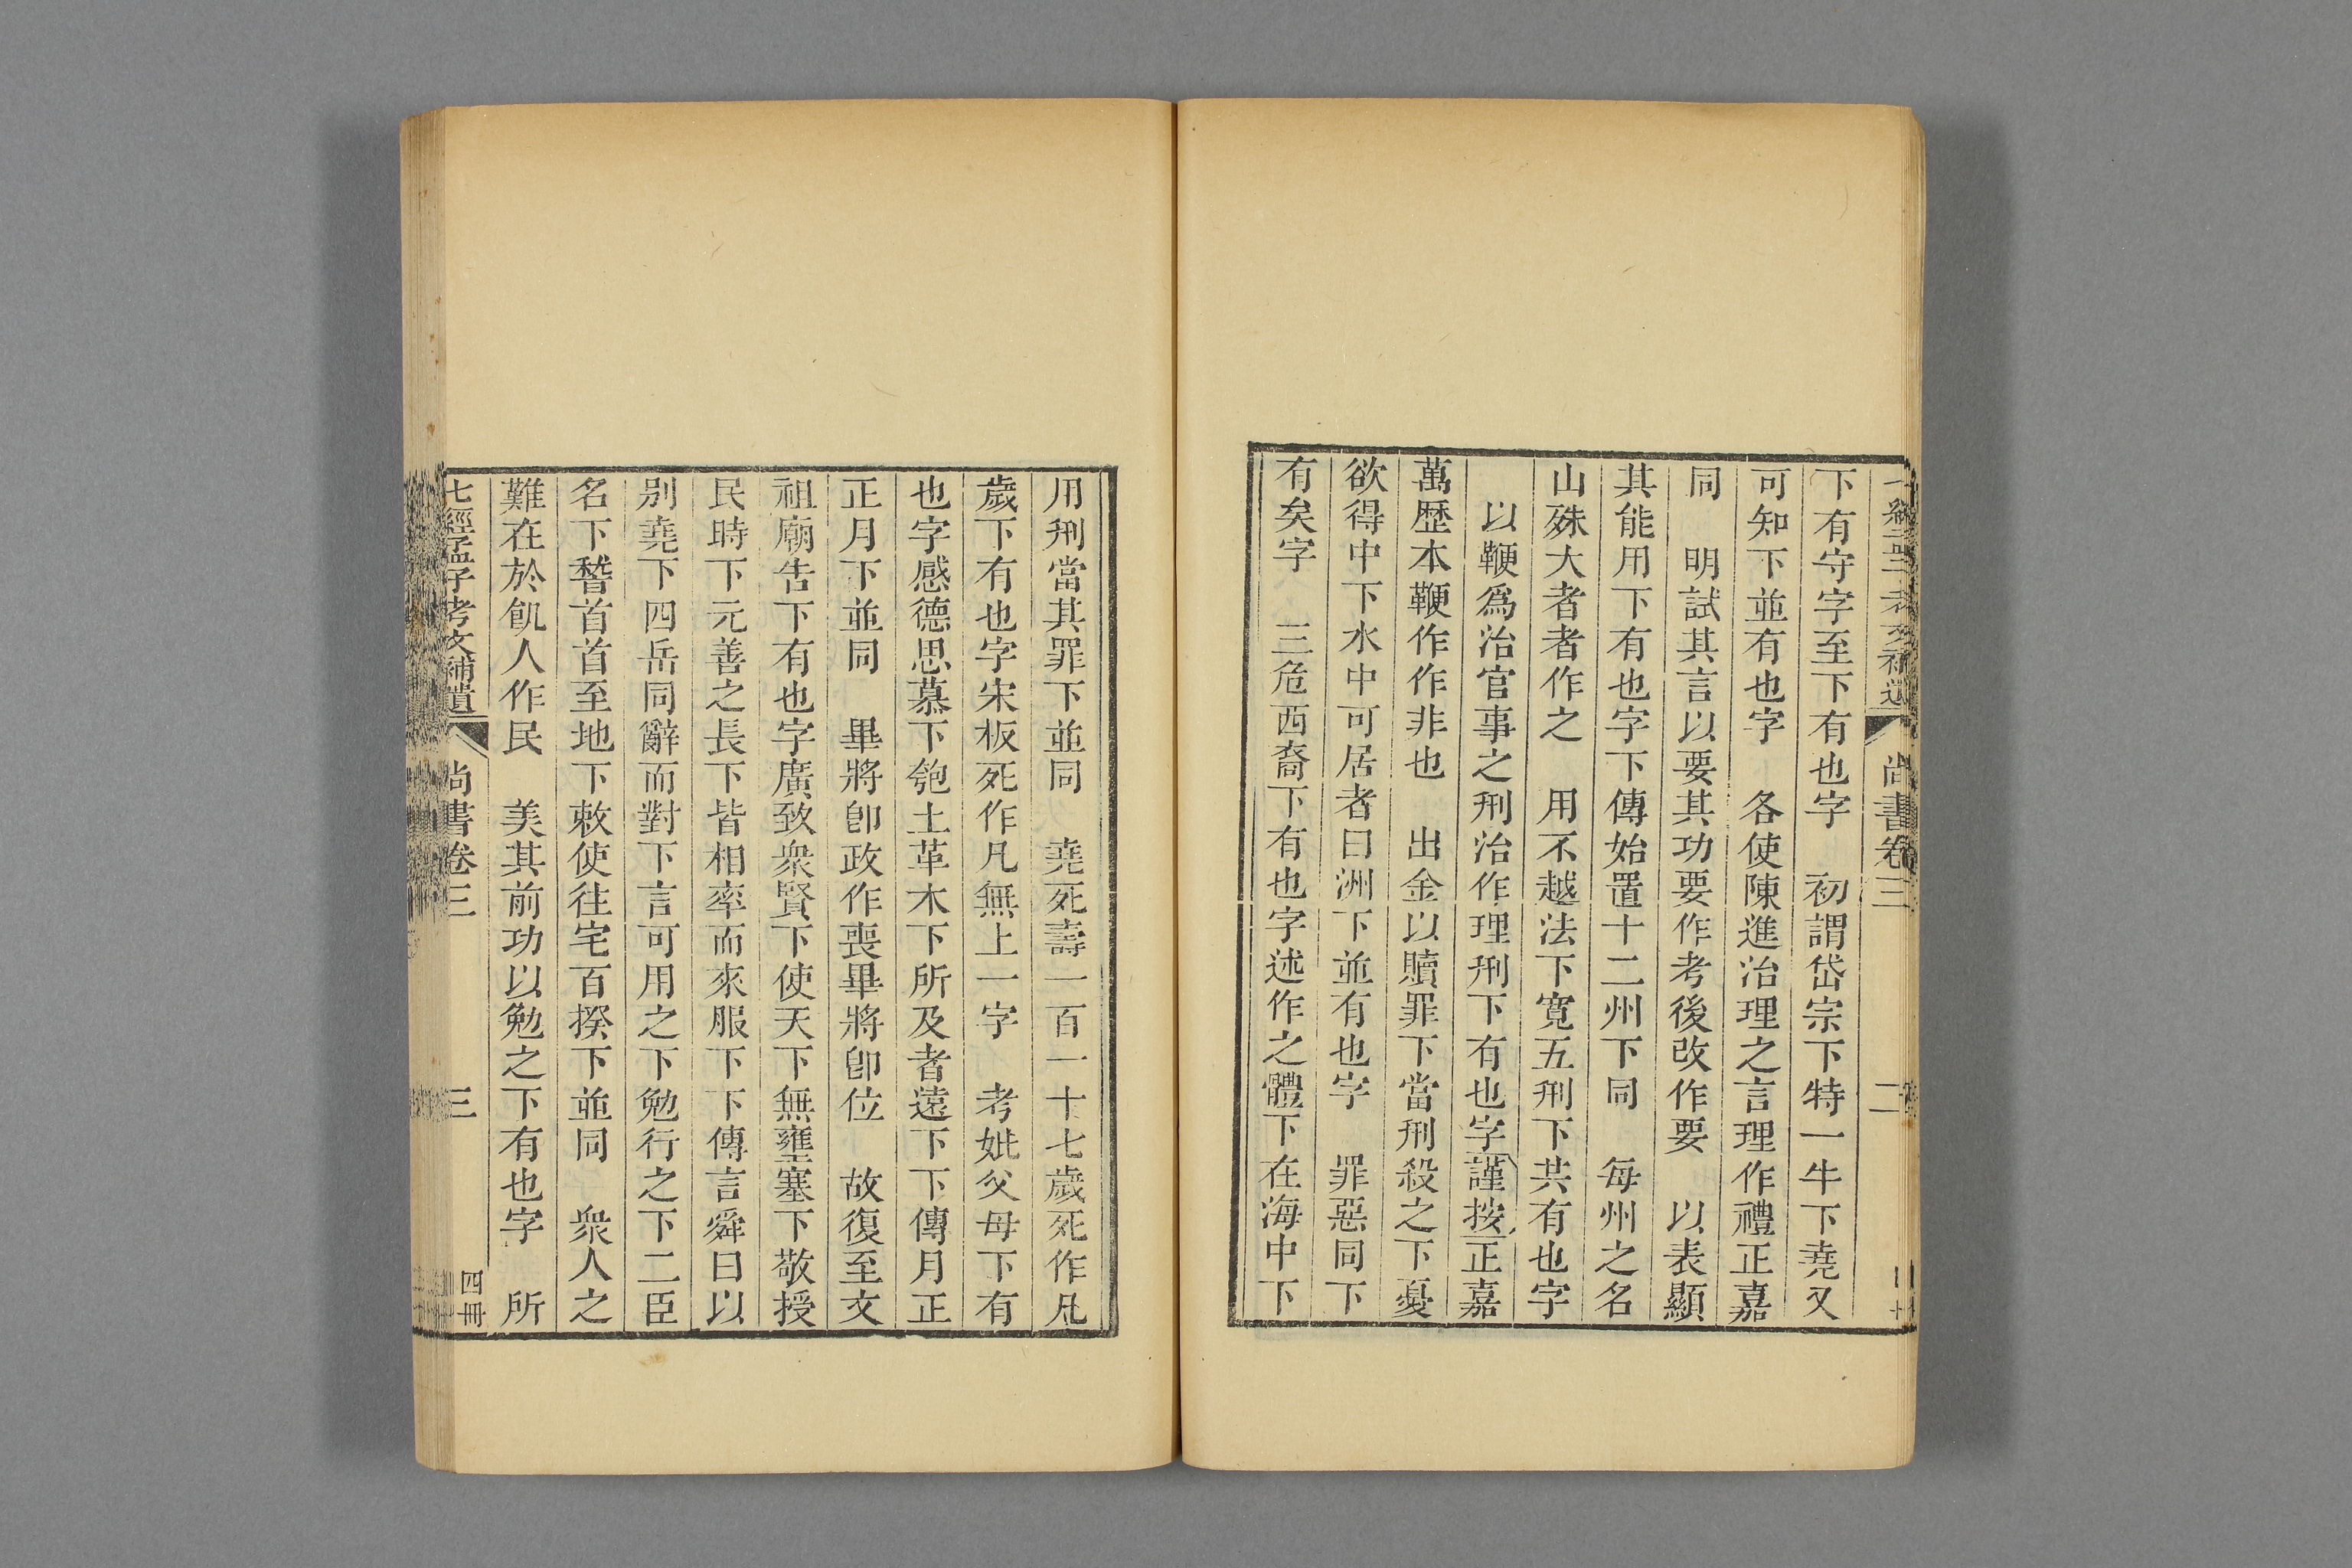 尚書卷三 二
下有守字至下有也字 初謂岱宗下特一牛下堯又
可知下並有也字 各使陳進治理之言理作禮正嘉
同 明試其言以要其功要作考後改作要 以表顯
其能用下有也字下傳始置十二州下同 每州之名
山殊大者者作之 用不越法下寬五刑下共有也字
以鞭爲治官事之刑治作理刑下有也字謹按正嘉
萬歷本鞭作作非也 出金以贖罪下當刑殺之下憂
欲得中下水中可居者曰洲下並有也字 罪惡同下
有矣字 三危西裔下有也字述作之體下在海中下
用刑當其罪下並同 堯死壽一百一十七歲死作凡
歲下有也字宋板死作凡無上一字 考妣父母下有
也字感德思慕下匏土革木下所及者遠下下傳月正
正月下並同 畢將卽政作喪畢將卽位 故復至文
祖廟告下有也字廣致衆賢下使天下無壅塞下敬授
民時下元善之長下皆相率而來服下下傳言舜曰以
別堯下四岳同辭而對下言可用之下勉行之下二臣
名下稽首首至地下敕使往宅百揆下並同 衆人之
難在於飢人作民 美其前功以勉之下有也字 所
七經孟子考文補遺 尚書卷三 三 四冊